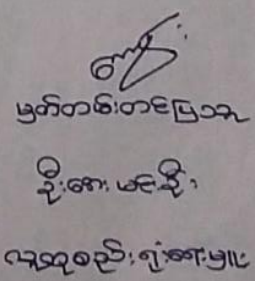 မှတ်တမ်းတင်ပြသူ
ဦးအေးမင်းဦး
လူထုစည်းရုံးရေးမှူး